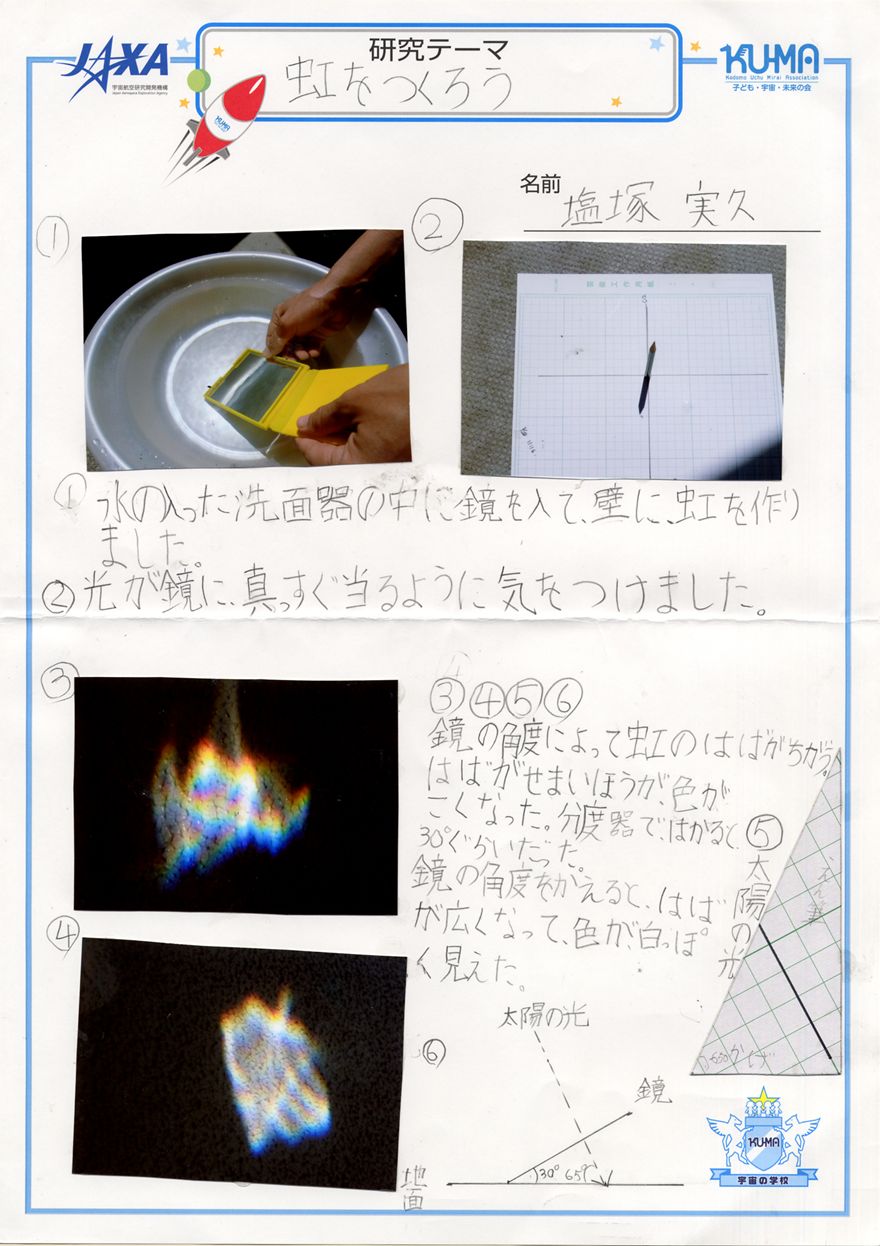 JAXA
宇宙航空研究開発機構
Japan Aerospace Exploration Agency
研究テーマ
虹をつくろう
KUMA
KU-MA
Kodomo Uchu Mirai Association
子ども・宇宙・未来の会
名前 塩塚 実久
①
②
① 水の入った洗面器の中に鏡を入て、壁に、虹を作り
ました。
② 光が鏡に、真っすぐ当るように気をつけました。
③
③④⑤⑥
鏡の角度によって虹のはばがちがう。
はばがせまいほうが、色が
こくなった。分度器で、はかると、
30°ぐらいだった。
鏡の角度をかえると、はば
が広くなって、色が、白っぽ
く見えた。
④
⑤
太陽の光
えん筆
かげ
⑥
太陽の光
鏡
30° 65°
地面
KUMA
宇宙の学校